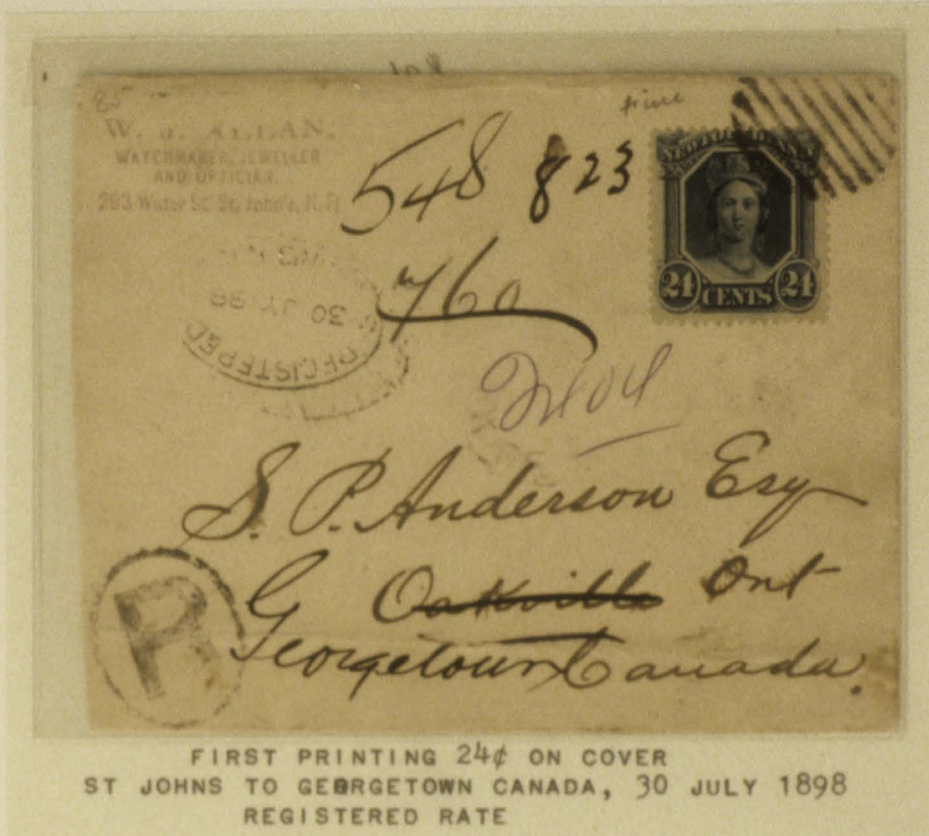 fine
W. J. ALLAN.
WATCHMAKER, JEWELLER
AND OPTICIAN.
293 Water St. St. John's, N.F.
548 823
760
2404
24 CENTS 24
REGISTERED
30 JY 98
S. P. Anderson Esq
G Oakville Ont
Georgetown Canada.
R
FIRST PRINTING 24¢ ON COVER
ST JOHNS TO GEORGETOWN CANADA, 30 JULY 1898
REGISTERED RATE